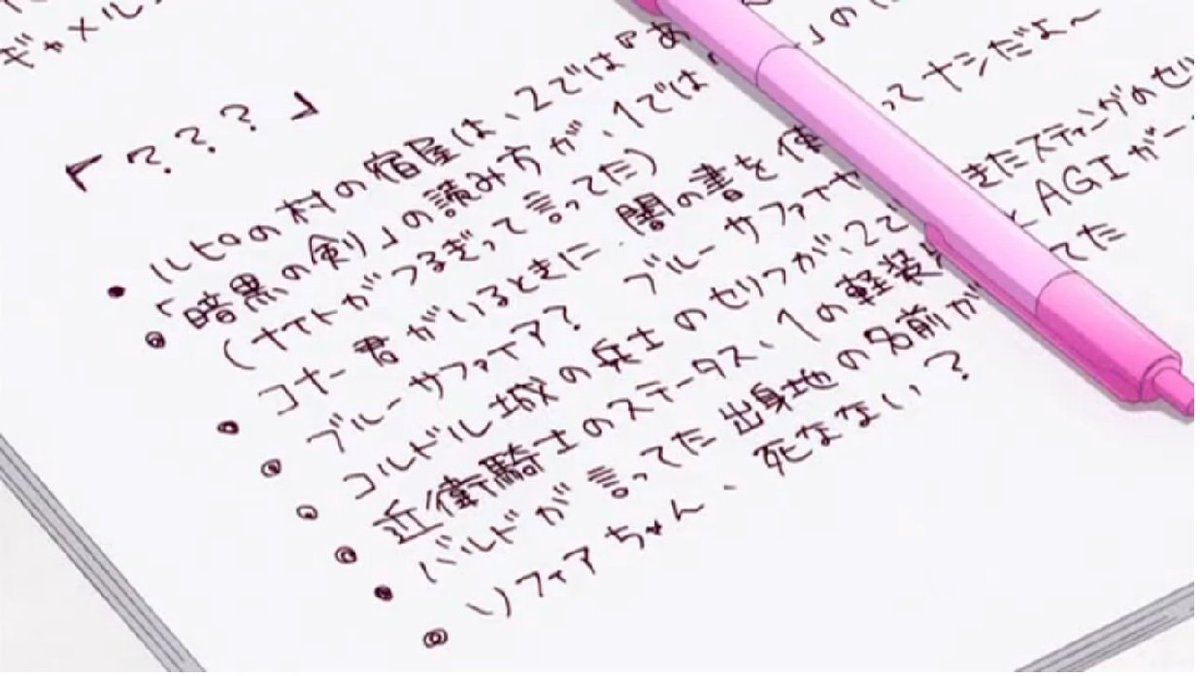 ギャメル
「???」
ルピロの村の宿屋は、2では『あ 」の
「暗黒の剣」の読み方が、1では
(ナイトがつるぎって言ってた)
コナー君がいるときに 闇の書を使 って ナシだよ~
ブルーサファイア? ブルーサファイヤ
コルドル城の兵士のセリフが、2で きたスティングのセ
近衛騎士のステータス、1の軽装 と AGIが
バルドが言ってた出身地の名前が てた
ソフィアちゃん、死なない?